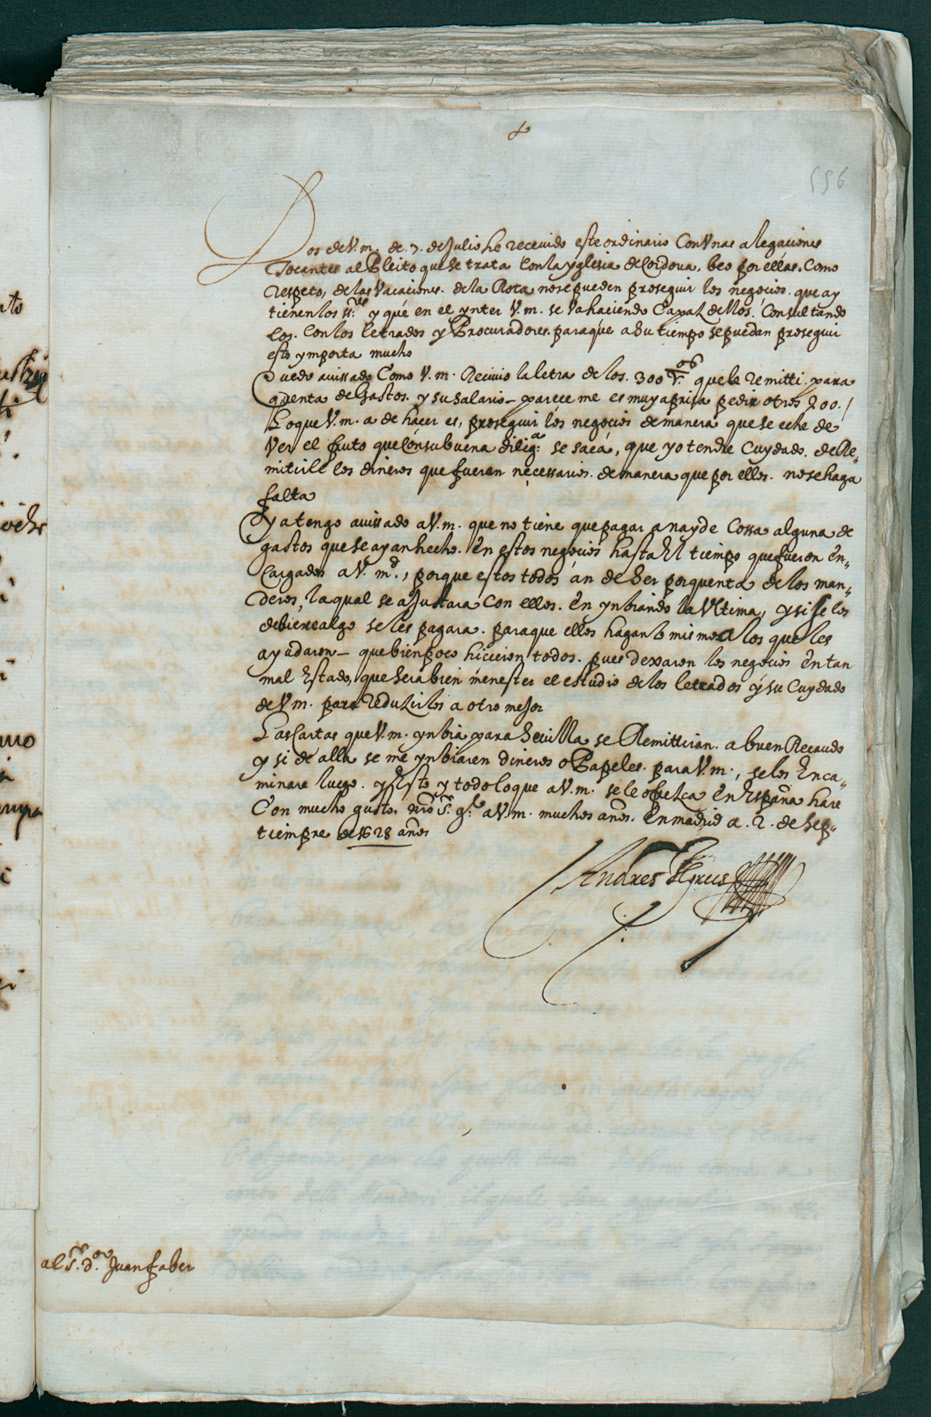 556
Dos de V.m. de 7. de Julio he receuido este ordinario Con Unas alegaciones
Tocantes al Pleito que se trata Con la yglesia de Cordoua. beo por ellas. Como
Respeto, de las Vacaciones. de la Rota no se pueden proseguir los negocios. que ay
tienen los ss.res y que en el ynter V.m. se Va haciendo Capaz dellos. Consultando
los. Con los letrados y Procuradores. para que a su tiempo se puedan proseguir
esto ymporta mucho
Quedo auissado Como V.m. Reciuio la letra de los. 300 que le Remitti. para
quenta de Gastos. y su salario – parece me es muy aprisa pedir otros 200./
Lo que V.m. a de hacer es, proseguir los negocios de manera que se eche de
Ver el fruto que Con su buena dilig.a se saca, que yo tendre Cuydado. de Re-
mitirle los dineros que fueren necessarios. de manera que por ellos. no se haga
falta
Ya tengo auissado a V.m. que no tiene que pagar a nayde Cossa alguna de
gastos que se ayan hecho. En estos negocios hasta El tiempo que fueron en-
Cargados a V. m.d, porque estos todos an de ser por quenta de los man-
deros, la qual se ajustara Con ellos. En ynbiando la Ultima, y si se les
debiere algo se les pagara. para que ellos hagan lo mismo a los que les
ayudaron – que bien poco hicieron todos. pues dexaron los negocios en tan
mal Estado, que sera bien menester el estudio de los letrados y su Cuydado
de V.m. para reduzirlos a otro mejor
Las Cartas que V.m. ynbia para Seuilla se Remittiran. a buen Recaudo
y si de alla se me ynbiaren dineros o Papeles. para V.m., se los Enca-
minare luego. y Esto y todo lo que a V.m. se le ofrezca En España hare
Con mucho gusto. nro S.r g.de a V.m. muchos años. En madrid a. 2. de Sep-
tiempre de 1628 años
Andres
al S.r d.or Juan faber